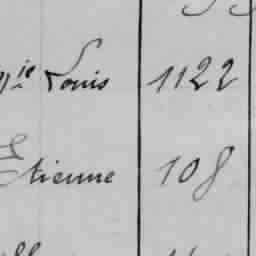 Louis 1122
Etienne 108